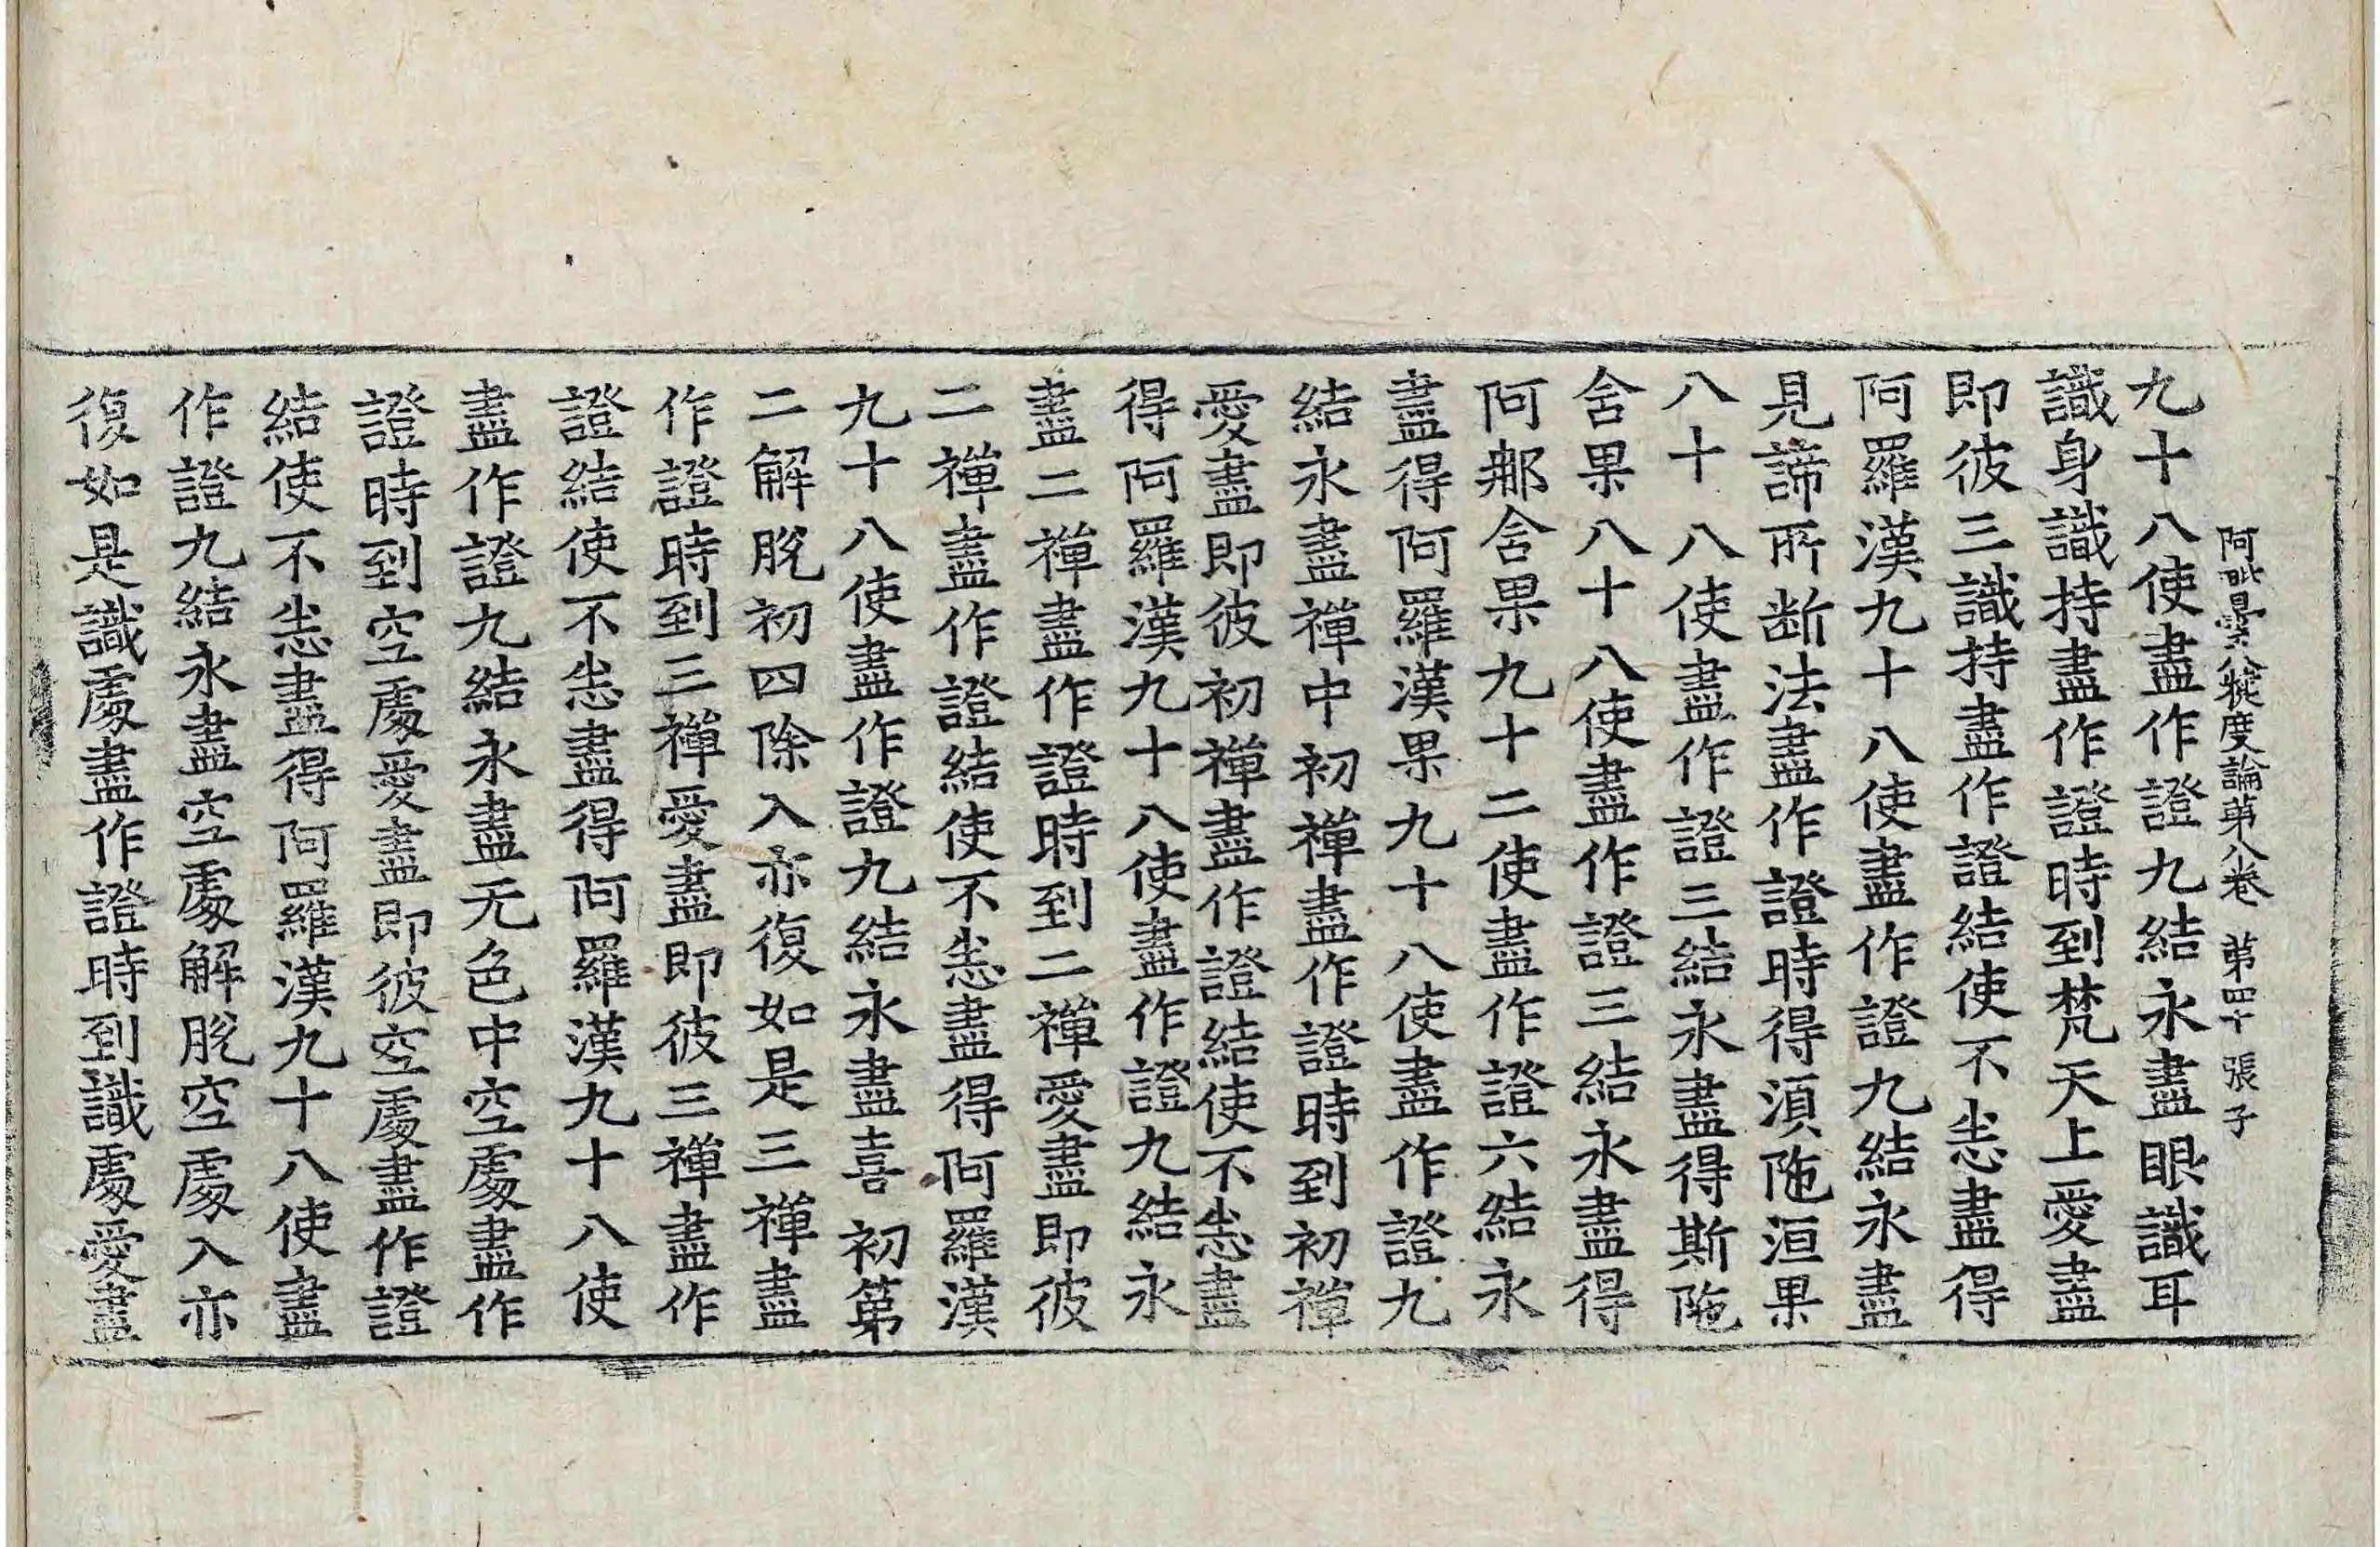 阿毗曇八犍度論第八卷 第四十 張子
九十八使盡作證九結永盡眼識耳
識身識持盡作證時到梵天上愛盡
即彼三識持盡作證結使不𢗝盡得
阿羅漢九十八使盡作證九結永盡
見諦所断法盡作證時得湏陁洹果
八十八使盡作證三結永盡得斯陁
含果八十八使盡作證三結永盡得
阿那含果九十二使盡作證六結永
盡得阿羅漢果九十八使盡作證九
結永盡禪中初禪盡作證時到初禪
愛盡即彼初禪盡作證結使不𢗝盡
得阿羅漢九十八使盡作證九結永
盡二禪盡作證時到二禪愛盡即彼
二禪盡作證結使不𢗝盡得阿羅漢
九十八使盡作證九結永盡喜初第
二解脫初四除入亦復如是三禪盡
作證時到三禪愛盡即彼三禪盡作
證結使不𢗝盡得阿羅漢九十八使
盡作證九結永盡无色中空處盡作
證時到空處愛盡即彼空處盡作證
結使不𢗝盡得阿羅漢九十八使盡
作證九結永盡空處解脫空處入亦
復如是識處盡作證時到識處愛盡